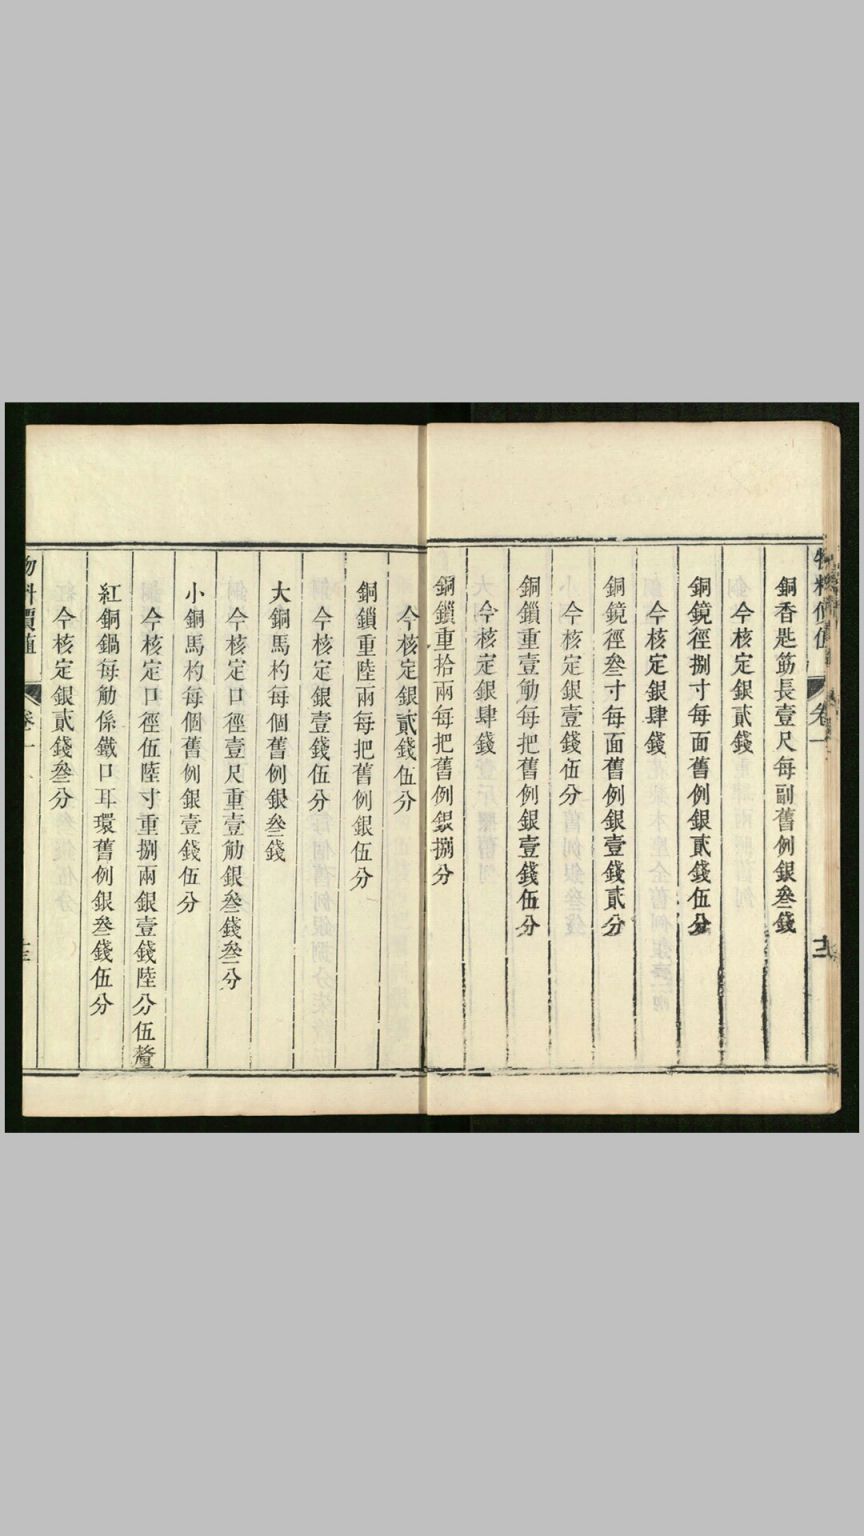 物料價值
卷一
銅香匙筯長壹尺每副舊例銀叁錢
今核定銀貳錢
銅鏡徑捌寸每面舊例銀貳錢伍分
今核定銀肆錢
銅鏡徑叁寸每面舊例銀壹錢貳分
今核定銀壹錢伍分
銅鎖重壹觔每把舊例銀壹錢伍分
今核定銀肆錢
銅鎖重拾兩每把舊例銀捌分
今核定銀貳錢伍分
銅鎖重陸兩每把舊例銀伍分
今核定銀壹錢伍分
大銅馬杓每個舊例銀叁錢
今核定口徑壹尺重壹觔銀叁錢叁分
小銅馬杓每個舊例銀壹錢伍分
今核定口徑伍陸寸重捌兩銀壹錢陸分伍釐
紅銅鍋每觔係鐵口耳環舊例銀叁錢伍分
今核定銀貳錢叁分
物料價值
卷一